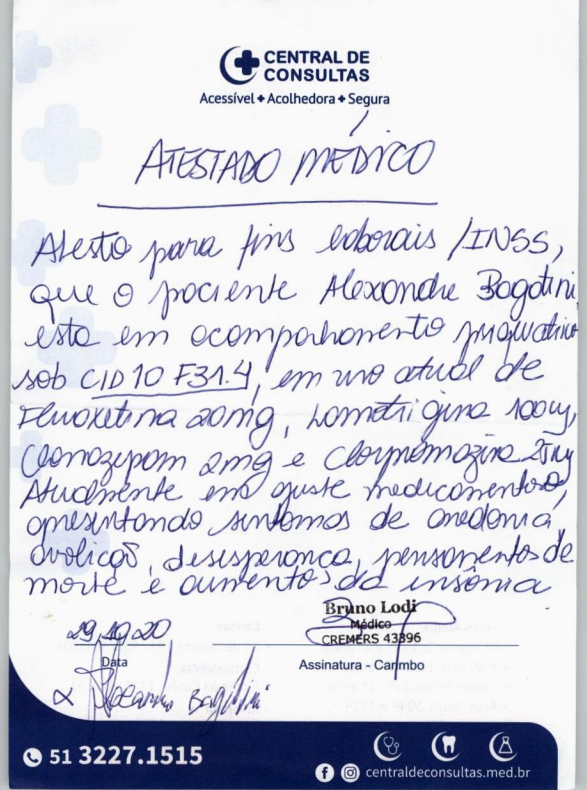 CENTRAL DE
CONSULTAS
Acessível + Acolhedora + Segura
ATESTADO MÉDICO
Atesto para fins laborais /INSS,
que o paciente Alexandre Bagatini
esta em acompanhamento psiquiátrico
sob CID10 F31.4, em uso atual de
Fluoxetina 20mg, Lamotrigina 100mg,
Clonazepam 2mg e Clorpromazina 25mg
Atualmente em ajuste medicamentoso,
apresentando sintomas de anedonia,
avolição, desesperança, pensamentos de
morte e aumentos da insônia
29,10,20
Bruno Lodi
Médico
CREMERS 43396
Data
Assinatura - Carimbo
Alexandre Bagatini
51 3227.1515
centraldeconsultas.med.br